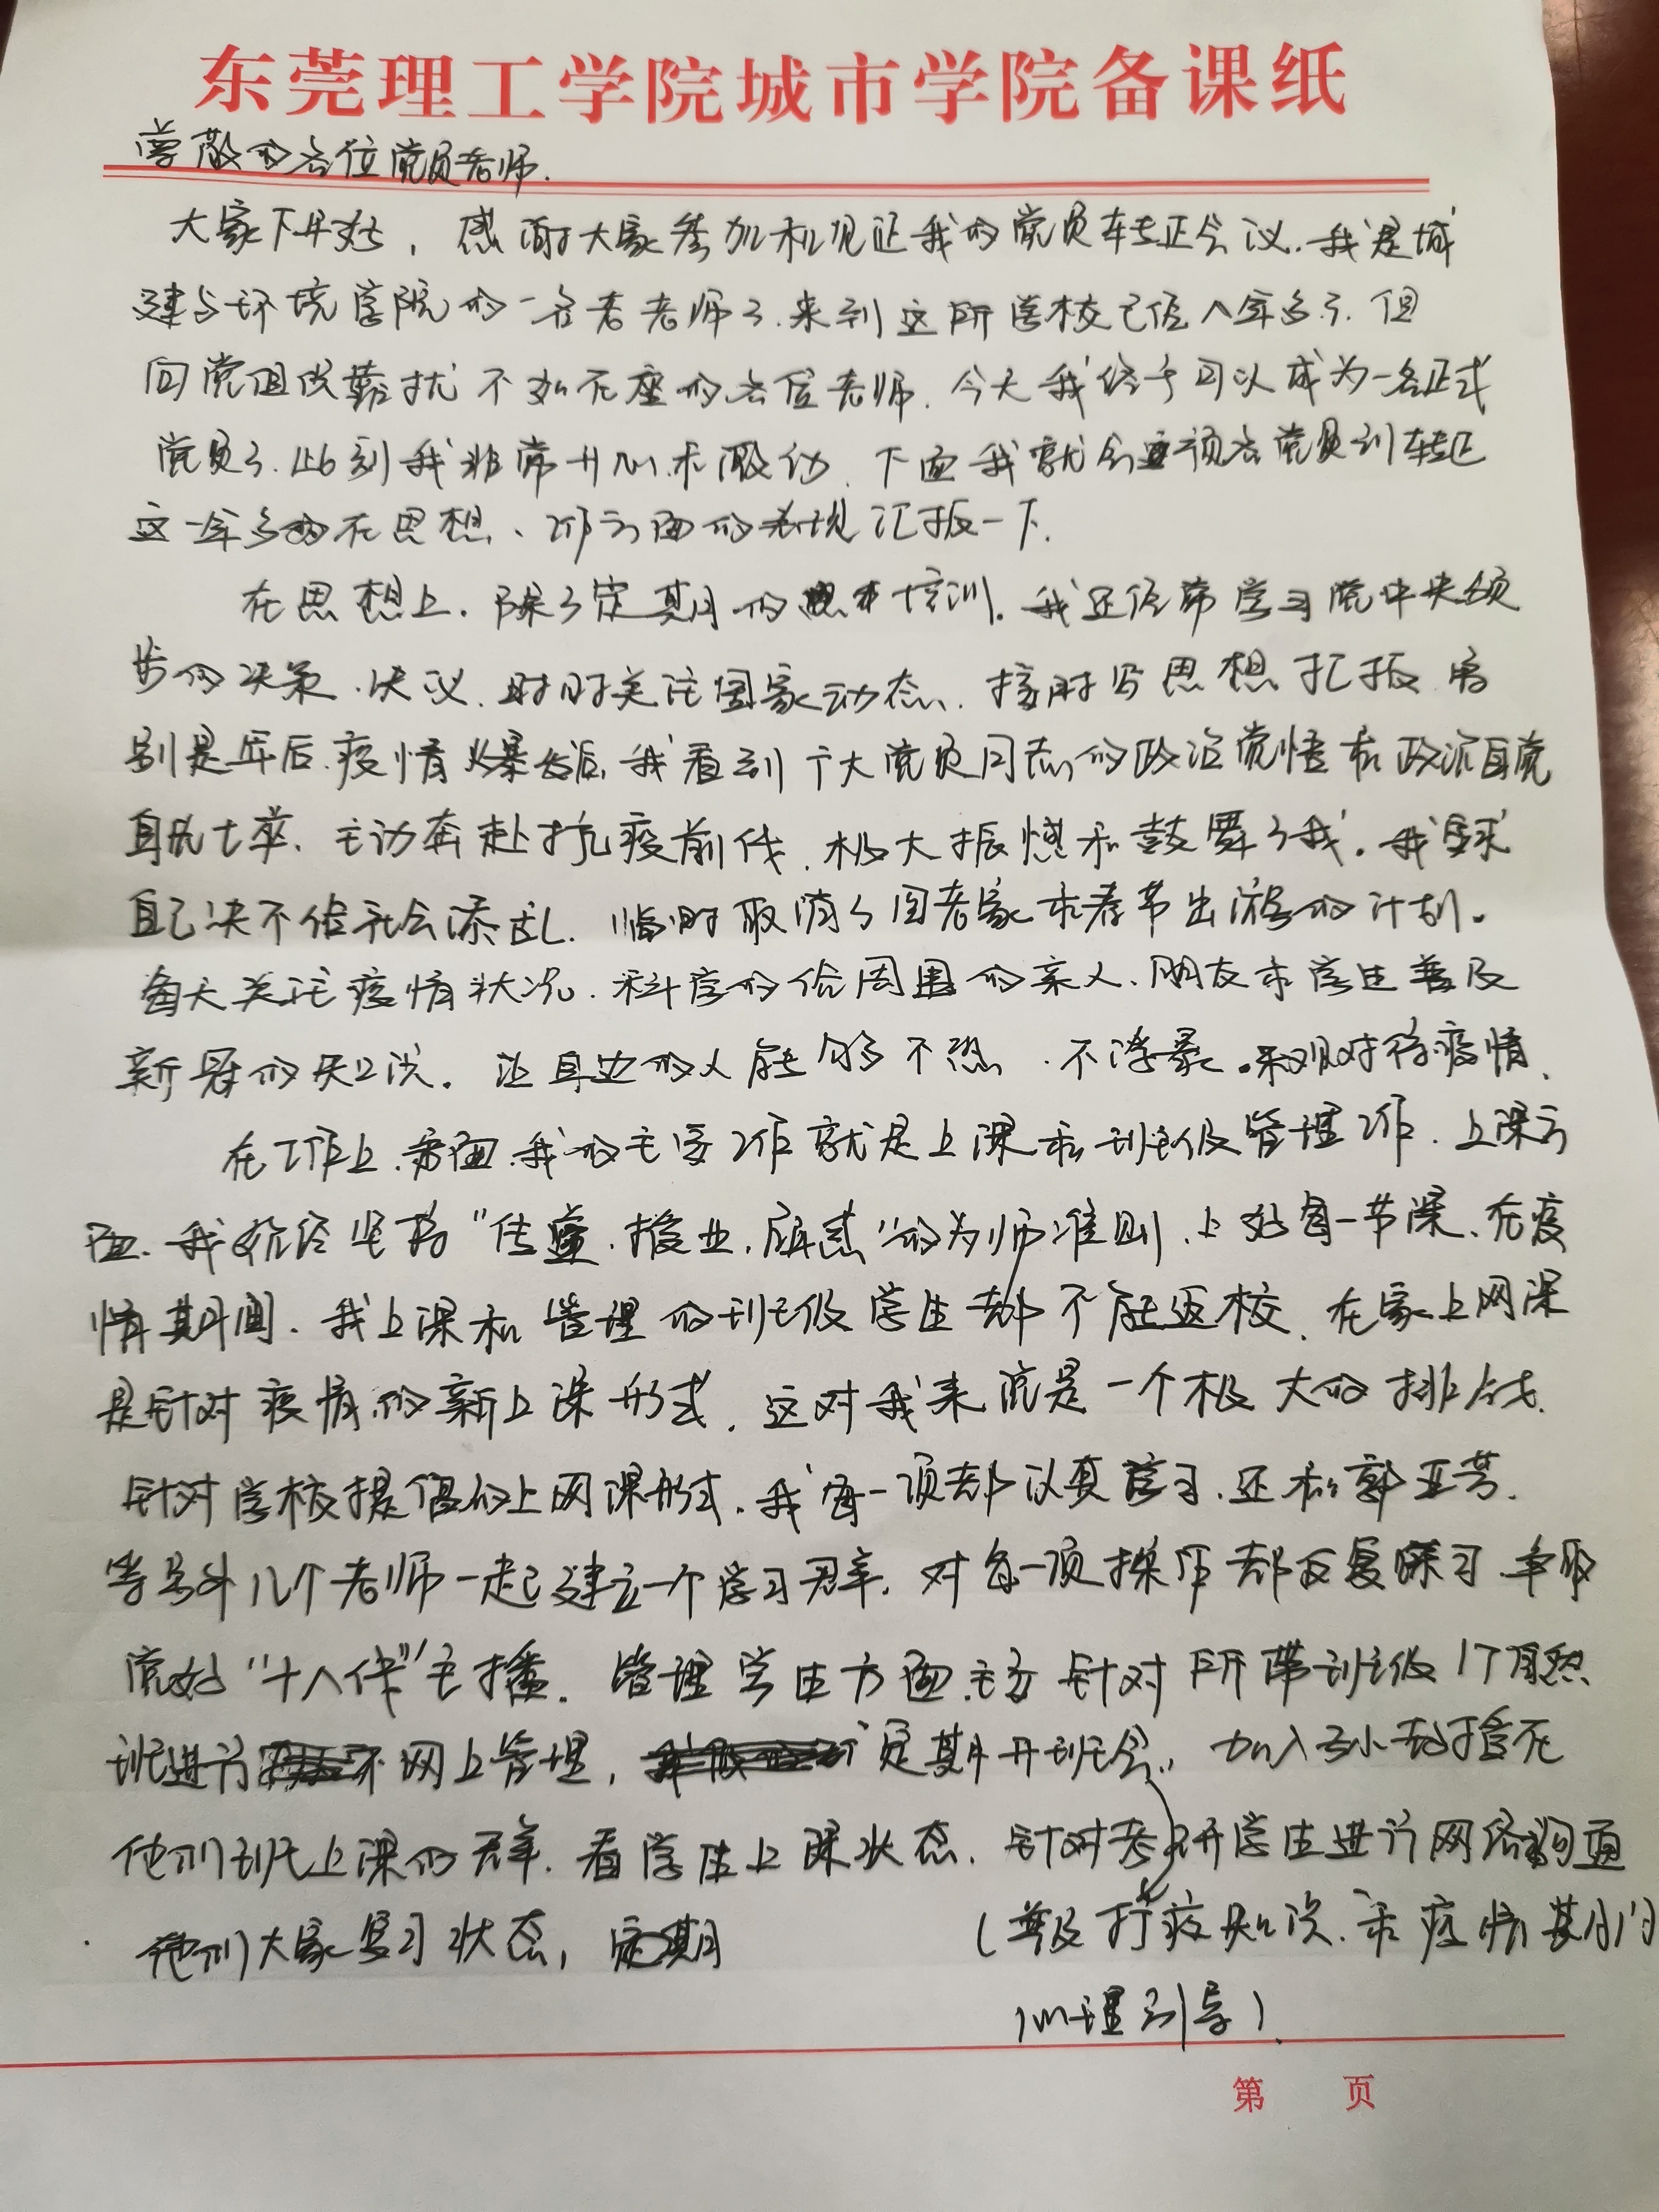 东莞理工学院城市学院备课纸
尊敬的各位党员老师.
大家下午好，感谢大家参加和见证我的党员转正会议.我是城
建与环境学院的一名老老师了.来到这所学校已经八年多了.但
向党组织靠拢不如在座的各位老师.今天我终于可以成为一名正式
党员了.此刻我非常开心和激动.下面我就会将预备党员到转正
这一年多的在思想、工作方面的表现汇报一下.
在思想上.除了定期的思想培训.我还经常学习党中央颁
步的决策.决议.时时关注国家动态.按时写思想汇报.特
别是年后.疫情爆发后,我看到广大党员同志的政治觉悟和政治自觉
自身士卒.主动奔赴抗疫前线.极大振憾和鼓舞了我.我要求
自己决不给社会添乱.临时取消了回老家和春节出游的计划。
每天关注疫情状况.科学的给周围的亲人.朋友和学生普及
新冠的知识.让身边的人能够不恐.不浮暴.乐观对待疫情.
在工作上.方面.我的主要工作就是上课和班级管理工作.上课方
面.我始终坚持"传道.授业.解惑"的为师准则.上好每一节课.在疫
情期间.我上课和管理的班级学生都不能返校.在家上网课
是针对疫情的新上课形式.这对我来说是一个极大的挑战.
针对学校提倡的上网课形式.我每一项都认真学习.还和郭亚芳.
等另外几个老师一起建立一个学习群.对每一项操作都反复练习.争取
当好"十八线"主播.管理学生方面.主要针对所带班级17自然
班进行网上管理，定期开班会.加入到小
他们班上课的群.看学生上课状态.针对考研学生进行网络沟通
他们大家复习状态，定期
(普及抗疫知识.和疫情期间
心理引导).
第 页